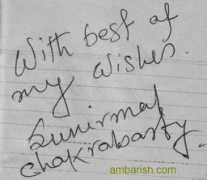 With best of
my wishes.
Sunirmal
Chakrabarty.
ambarish.com